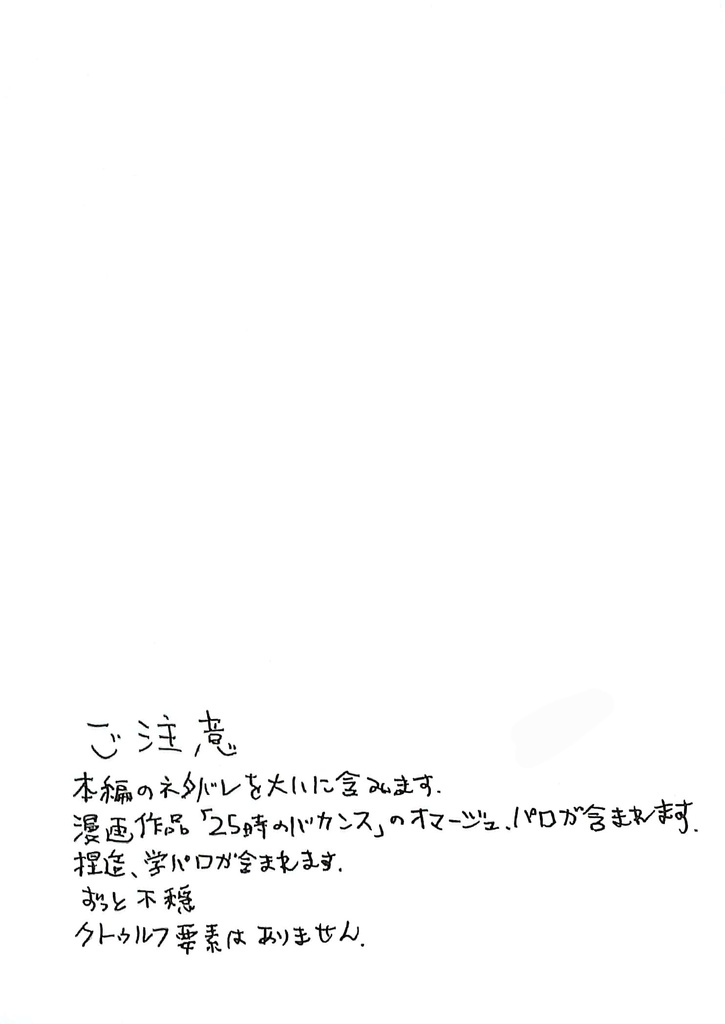 ご注意
本編のネタバレを大いに含みます.
漫画作品「25時のバカンス」のオマージュ、パロが含まれます.
捏造、学パロが含まれます.
ずっと不穏
クトゥルフ要素は ありません.